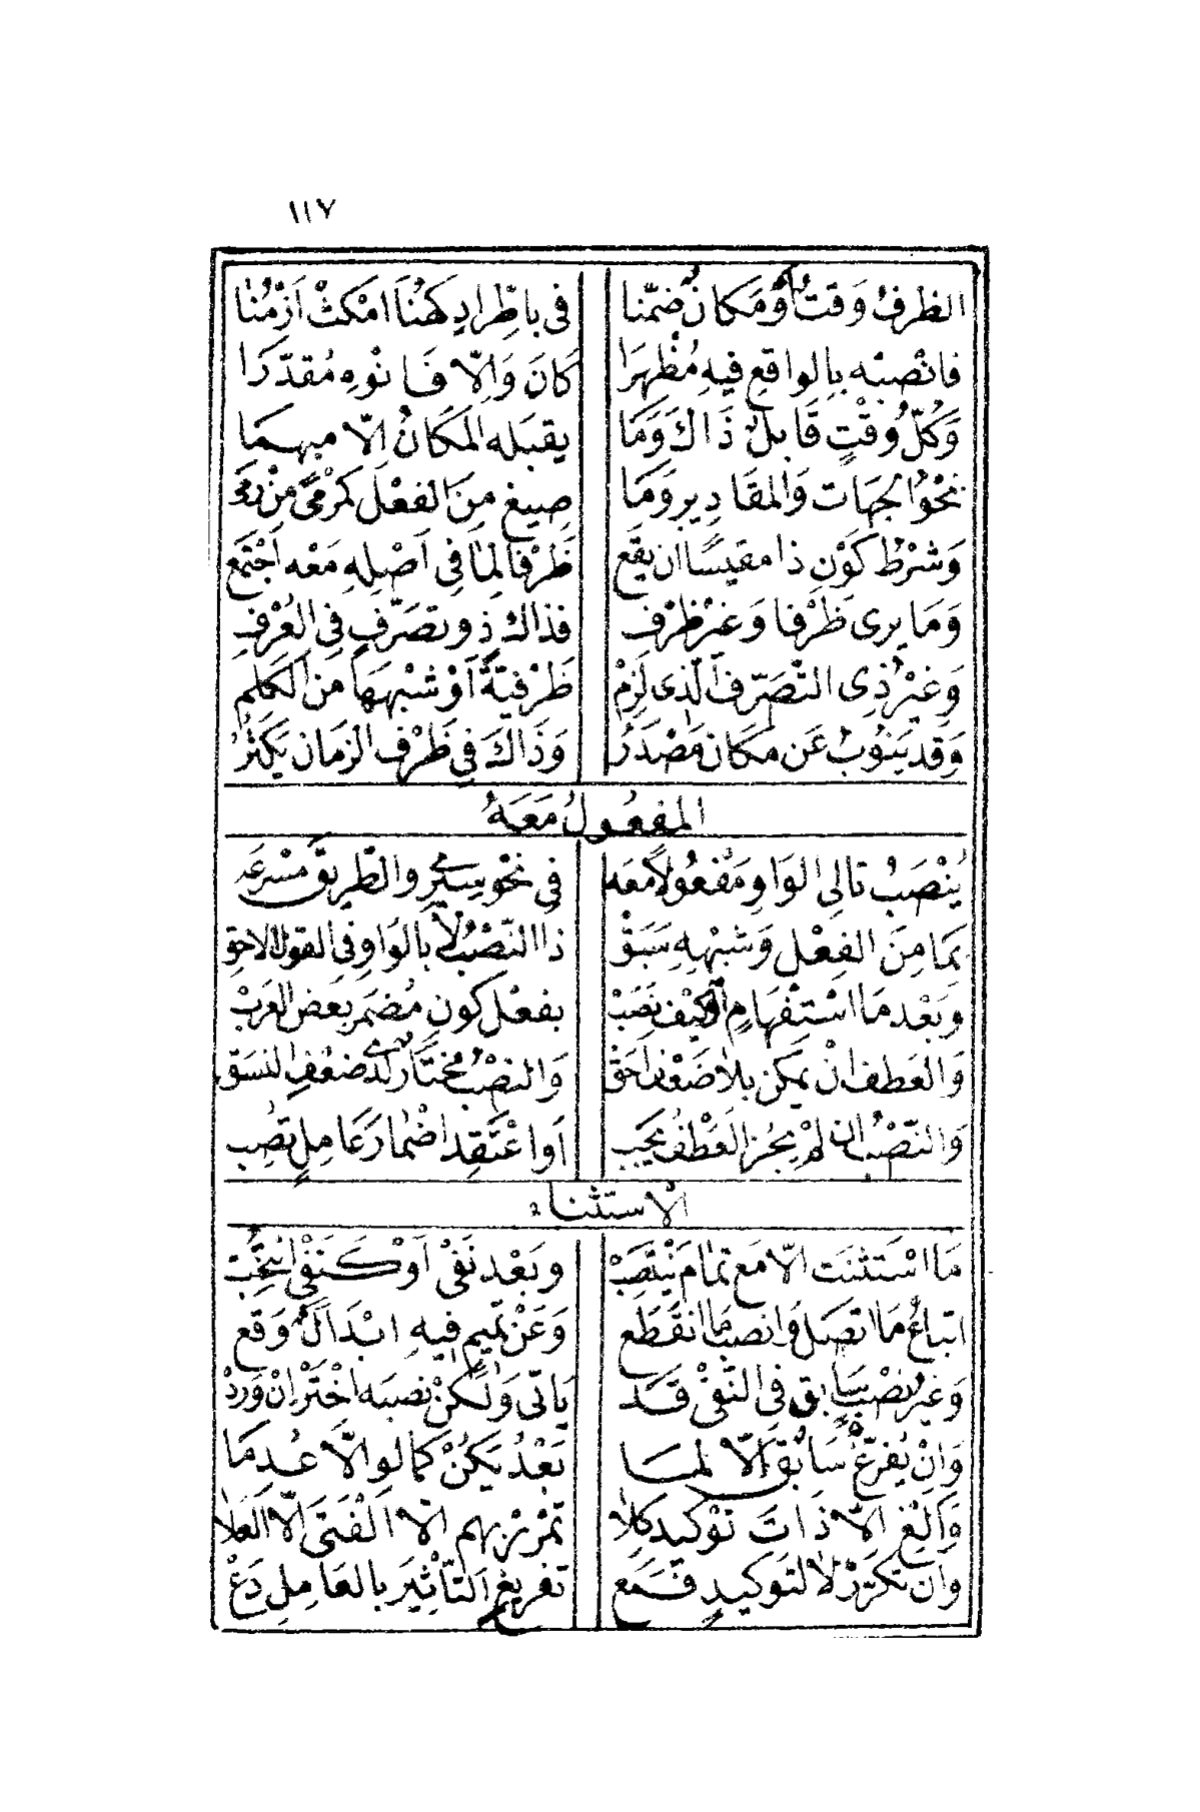 ١١٧
الظرف وَقتٌ أَوْ مَكانٌ ضُمّنا في بِاطِّرادٍ كَهُنَا امْكثْ اَزْمُنا
فانْصِبْه بِالواقعِ فيهِ مُظْهَرَا كَانَ وَاِلّا فَانْوِهِ مُقدّرَا
وَكُلُّ وَقْتٍ قَابِلٌ ذَاكَ وَمَا يقبَله المَكَانُ اِلّا مبهما
نحْوُ الجهَات وَالمقَادِيرِ وَمَا صِيغَ مِنَ الفِعْلِ كمَرْمًى مِنْ رَمَى
وَشَرْطُ كَوْنِ ذا مقيسًا ان يَقَع ظَرْفا لِمَا في اَصْلِهِ مَعْه اجْتَمَع
وَمَا يرى ظَرْفا وَغيْرَ ظرْفِ فذاك ذو تصَرّفٍ في العُرْفِ
وَغيْرُ ذِي التّصَرّف الّذي لَزِمْ ظَرْفيّةً اَوْ شبْهَهَا مَن الكَلِم
وَقد يَنوُبُ عَن مَكَان مَصْدَرُ وَذَاكَ في ظَرْفِ الزمَان يَكثُرُ
المفعُولُ مَعَهُ
يُنْصَبُ تالِي الوَاوِ مَفْعُولاً مَعَه في نحْو سِيْرِي والطّرِيقَ مسْرِعَه
بمَا مِنَ الفِعْلِ وَشبْهِهِ سَبَقْ ذا النّصْبُ لا بالوَاوِ في القول الاحق
وَبَعْد مَا اسْتِفْهَامٍ اَوْ كَيْف نَصَبْ بفعْل كونٍ مُضمَرٍ بَعض العَرَبْ
وَالعَطف انْ يمكن بلا ضَعْف احَقْ وَالنصْبُ مختَارٌ لَدَى ضعْفِ النسَق
وَالنّصْبُ ان لمْ يجُز العَطْفُ يَجِب اَو اعْتَقِد اضْمارَ عَامِلٍ تصِب
الْاِسْتثناءُ
مَا اسْتَثنَت الّا مَع تمَام يَنْتَصِبْ وبَعْد نَفْيٍ اَوْ كَنَفْيٍ انتُخِبْ
اتباعُ مَا اتصَلَ وَانصب مَا انقَطَع وَعَنْ تميمٍ فيهِ ابْدَالٌ وَقَع
وَغَيْرُ نصْبِ سَابقٍ في النّفيْ قَد يَاتي وَلكنْ نصبَه اخْتَرْ انْ وَرَدْ
وَاِنْ يُفَرّغْ سَابقٌ اَلّا لمَا بَعْدُ يَكُنْ كمَا لَو الّا عُدِمَا
وَاَلغِ الّا ذَاتَ تَوْكيدٍ كلَا تمْرُرْ بهم الّا الْفَتَى الّا العَلَا
وَانْ تكَرّرْ لا لتَوكيدٍ فَمَع تفريغٍ التّأثِيرَ بالعَامِلِ دَعْ